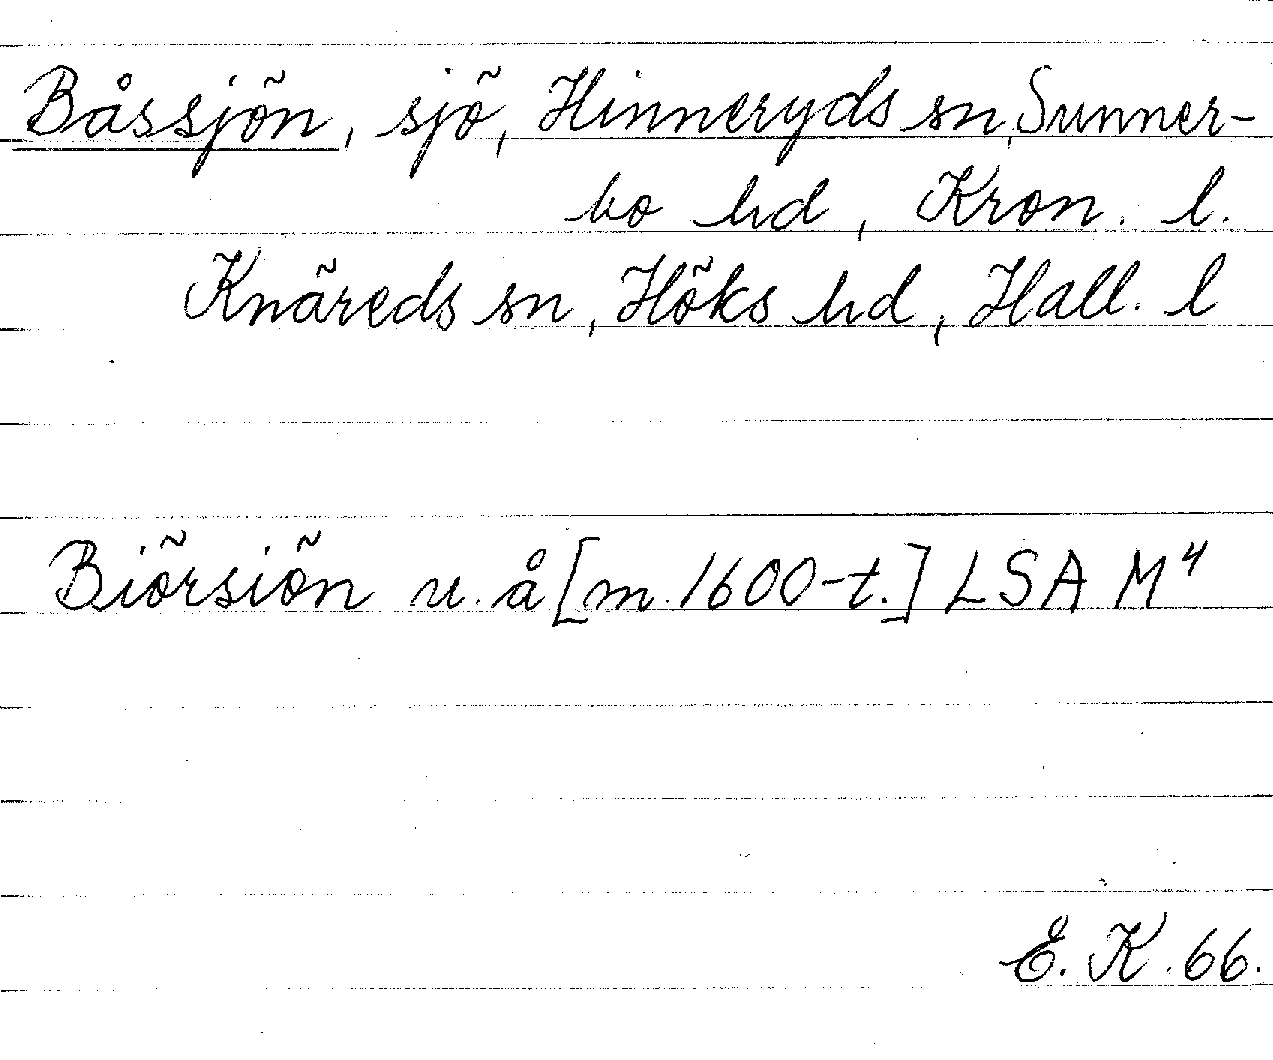 Båssjön, sjö, Hinneryds sn, Sunner-
bo hd, Kron. l.
Knäreds sn, Höks hd, Hall. l
Biörsiön u. å [m. 1600-t.] LSA M4
E. K. 66.